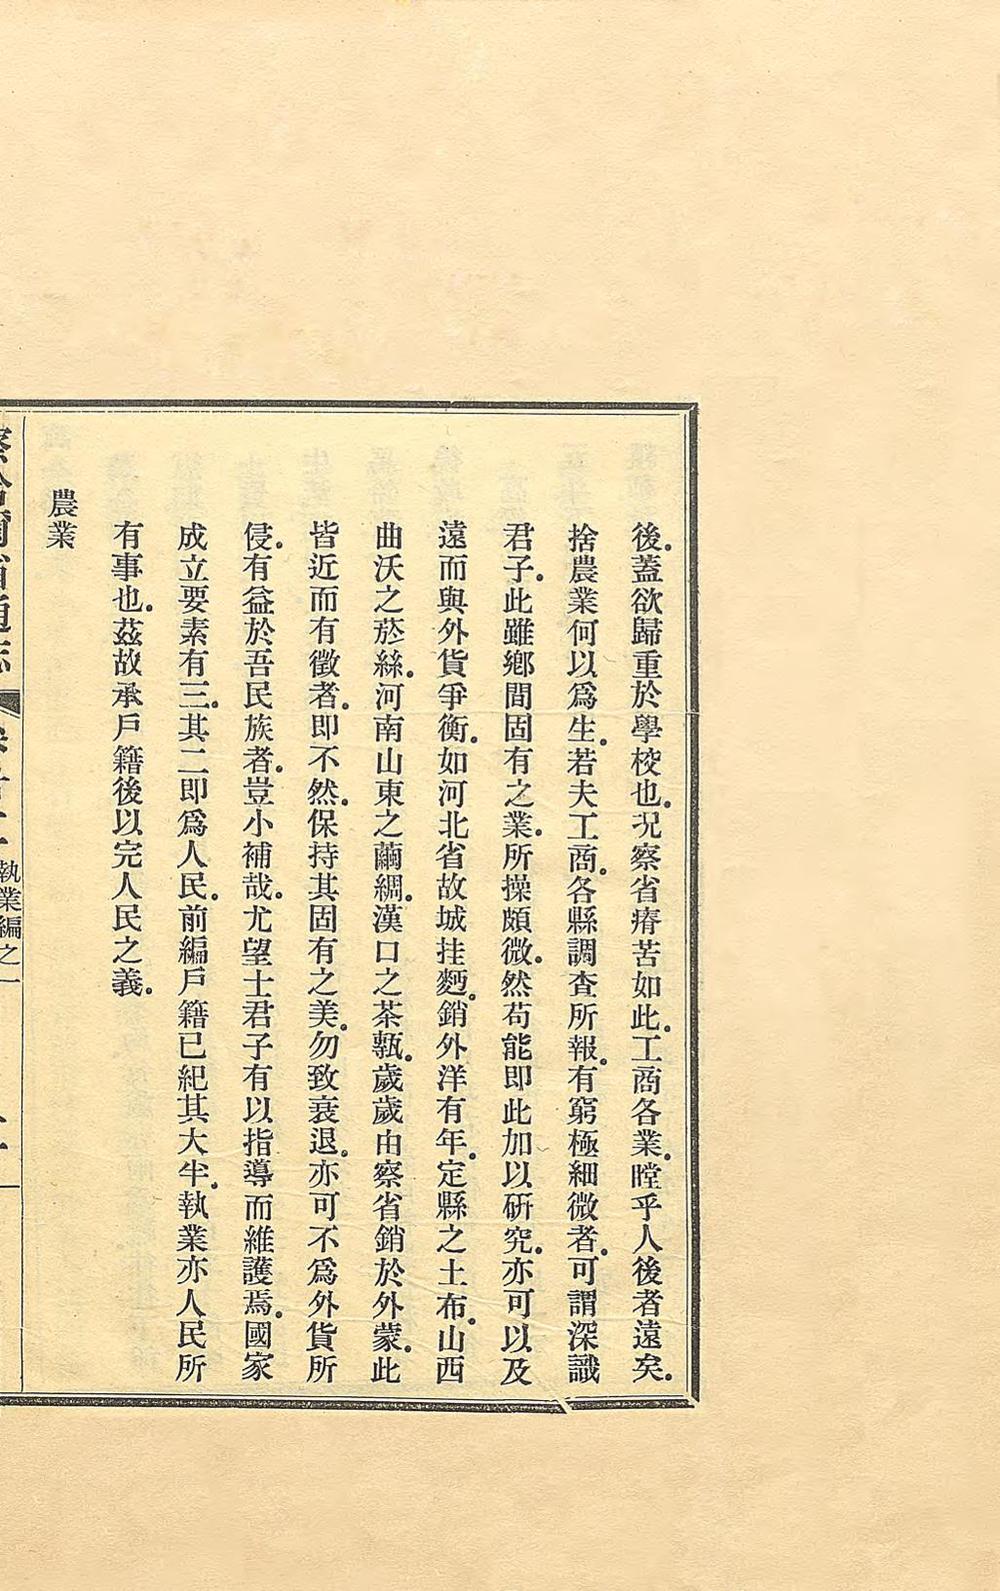 後。蓋欲歸重於學校也。况察省瘠苦如此。工商各業。瞠乎人後者遠矣。
捨農業何以爲生。若夫工商。各縣調查所報。有窮極細微者。可謂深識
君子。此雖鄉間固有之業。所操頗微。然苟能即此加以研究。亦可以及
遠而與外貨爭衡。如河北省故城挂麪。銷外洋有年。定縣之土布。山西
曲沃之菸絲。河南山東之繭綢。漢口之茶甎。歲歲由察省銷於外蒙。此
皆近而有徵者。即不然。保持其固有之美。勿致衰退。亦可不爲外貨所
侵。有益於吾民族者。豈小補哉。尤望士君子有以指導而維護焉。國家
成立要素有三。其二即爲人民。前編戶籍已紀其大半。執業亦人民所
有事也。茲故承戶籍後以完人民之義。
農業
察哈爾省通志
執業編之一